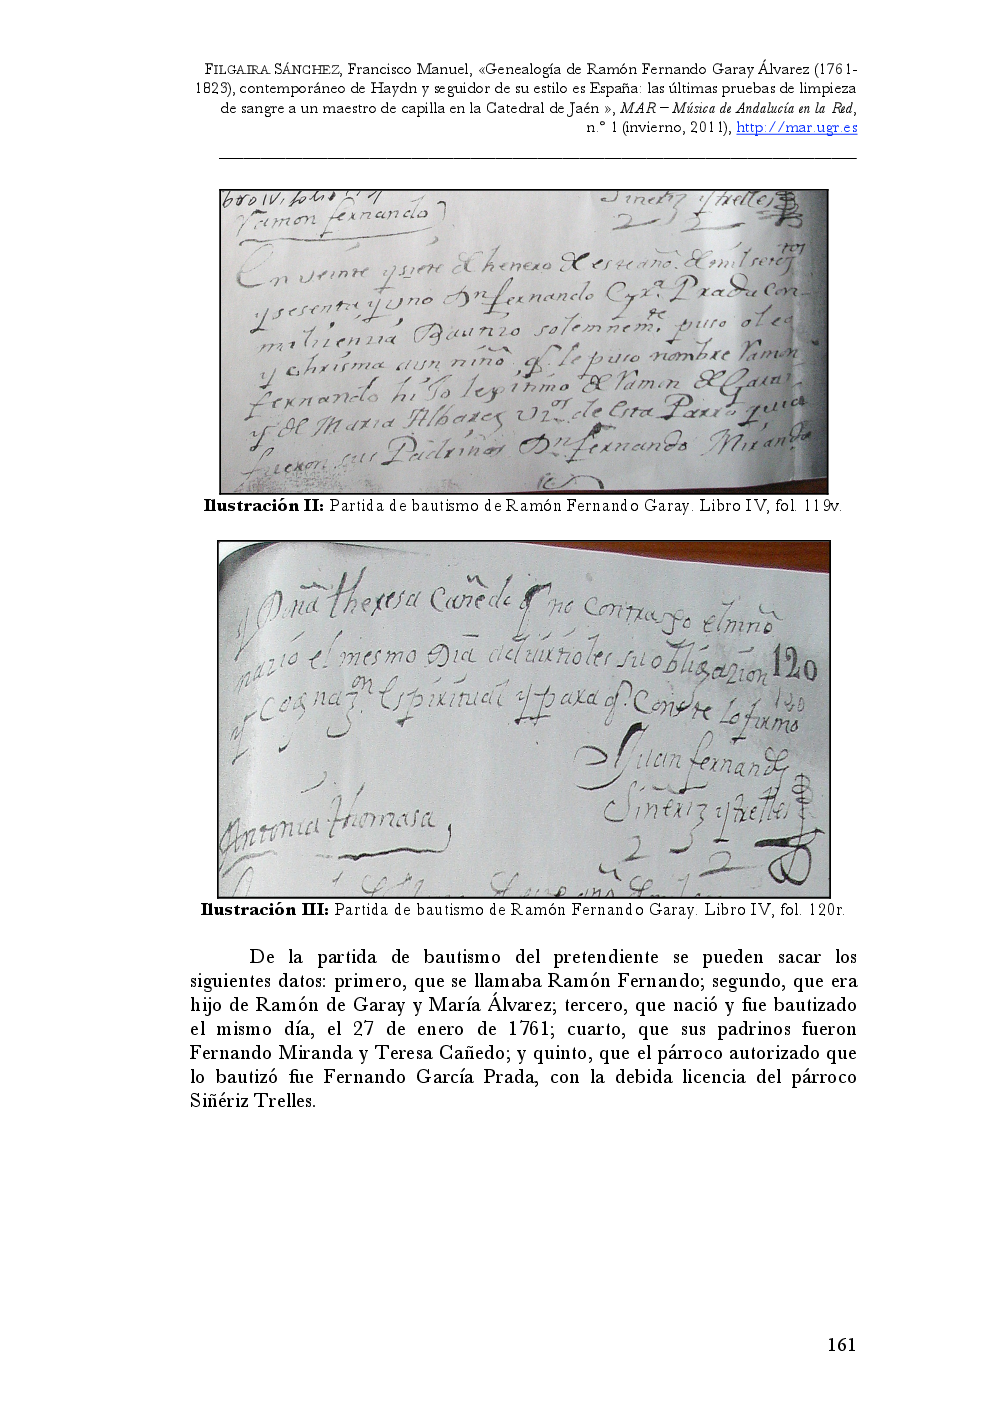 FILGAIRA SÁNCHEZ, Francisco Manuel, «Genealogía de Ramón Fernando Garay Álvarez (1761-
1823), contemporáneo de Haydn y seguidor de su estilo es España: las últimas pruebas de limpieza
de sangre a un maestro de capilla en la Catedral de Jaén », MAR – Música de Andalucía en la Red,
n.º 1 (invierno, 2011), http://mar.ugr.es
Siñeriz y trelles
Ramon fernando
En veinte y siete de henero de este año de mil setectos
y sesenta y uno Dn fernando Gra. Prada con
mi lizenzia Bautizo solemnemte. puso oleo
y chrisma aun niño, q. le puso nombre Ramon
fernando hijo lexitimo de Ramon de Garai
y de Maria Albarez vzos. de esta Parroquia
fueron sus Padrinos Dn fernando Miranda
Ilustración II: Partida de bautismo de Ramón Fernando Garay. Libro IV, fol. 119v.
y Doña theresa Cañedo q no contraxo el niño
nazió el mesmo Dia advirtioles su obligazion
120
y cognazon. Espiritual y para q. Conste lo firmo
120
Juan fernandz
Siñeriz y trelles
Antonia thomasa
Ilustración III: Partida de bautismo de Ramón Fernando Garay. Libro IV, fol. 120r.
De la partida de bautismo del pretendiente se pueden sacar los
siguientes datos: primero, que se llamaba Ramón Fernando; segundo, que era
hijo de Ramón de Garay y María Álvarez; tercero, que nació y fue bautizado
el mismo día, el 27 de enero de 1761; cuarto, que sus padrinos fueron
Fernando Miranda y Teresa Cañedo; y quinto, que el párroco autorizado que
lo bautizó fue Fernando García Prada, con la debida licencia del párroco
Siñériz Trelles.
161